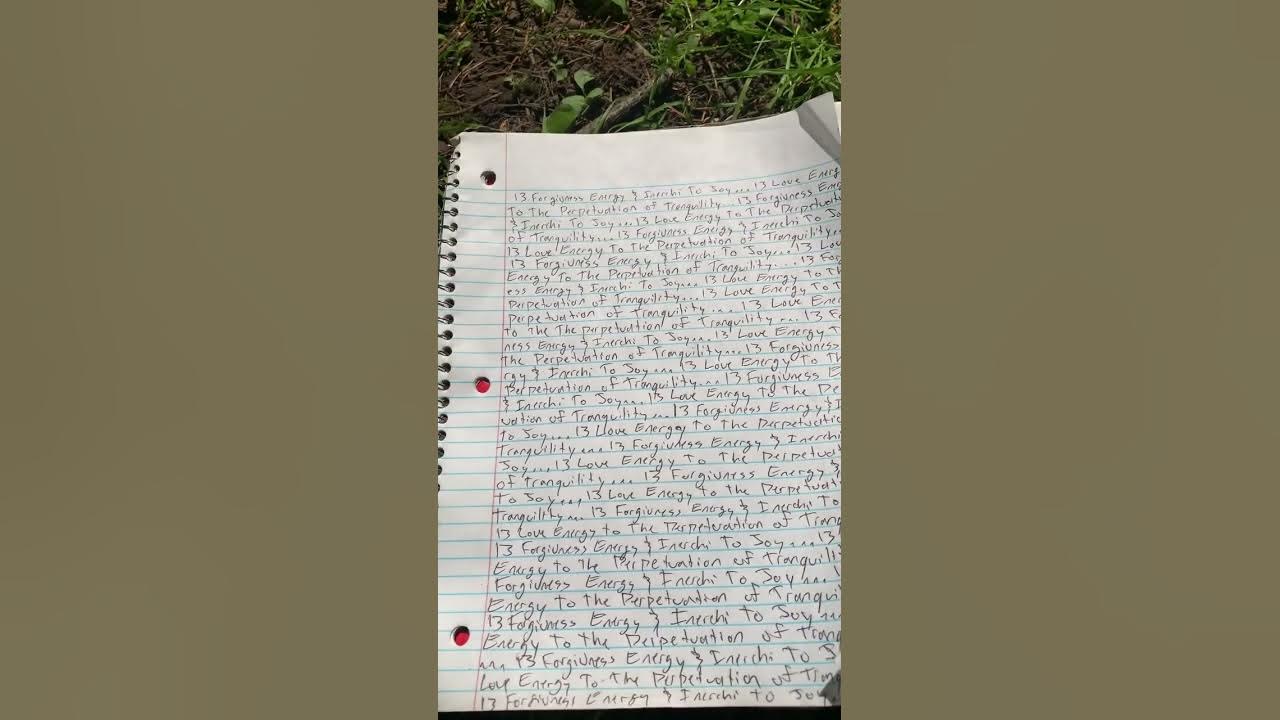 13 Forgivness Energy & Inerchi To Joy... 13 Love Energ
To The Perpetuation of Tranquility... 13 Forgivness Ener
& Inerchi To Joy... 13 Love Energy To The Perpetuat
of Tranquility... 13 Forgivness Energy & Inerchi To Jo
13 Love Energy To The Perpetuation of Tranquility...
13 Forgivness Energy & Inerchi To Joy... 13 Lov
Energy To The Perpetuation of Tranquility.... 13 For
ess Energy & Inerchi To Joy... 13 Love Energy To Th
Perpetuation of Tranquility... 13 Love Energy To T
Perpetuation of Tranquility.... 13 Love Ener
To The The Perpetuation of Tranquility... 13 F
ness Energy & Inerchi To Joy... 13 Love Energy T
The Perpetuation of Tranquility... 13 Forgivness
rgy & Inerchi To Joy.... 13 Love Energy To Th
Perpetuation of Tranquility... 13 Forgivness E
& Inerchi To Joy... 13 Love Energy To The Pe
uation of Tranquility... 13 Forgivness Energy & I
To Joy... 13 Llove Energy To The Perpetuatio
Tranquility.... 13 Forgivness Energy & Inerchi
Joy... 13 Love Energy To The Perpetuat
of Tranquility.... 13 Forgivness Energy &
To Joy..., 13 Love Energy to the Perpetuat
Tranquility... 13 Forgivness Energy & Inerchi To
13 Love Energy to The Perpetuation of Tranq
13 Forgivness Energy & Inerchi To Joy.... 13
Energy to The Perpetuation of Tranquilit
Forgivness Energy & Inerchi To Joy.... 1
Energy To The Perpetuation of Tranqui
13 Forgivness Energy & Inerchi to Joy...
Energy To the Perpetuation of Tranq
... 13 Forgivness Energy & Inerchi To J
Love Energy To the Perpetuation of Tranq
13 Forgivness Energy & Inerchi to Joy.